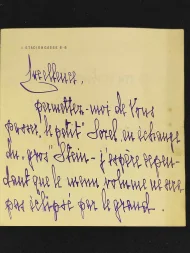 I. STEINDLGASSE N° 4
Excellence,
permettez-moi de Vous
passer, le "petit" Sorel en échange
du "gros" Stein - j'espère cepen-
dant que le menu volume ne sera
pas éclipsé par le grand.